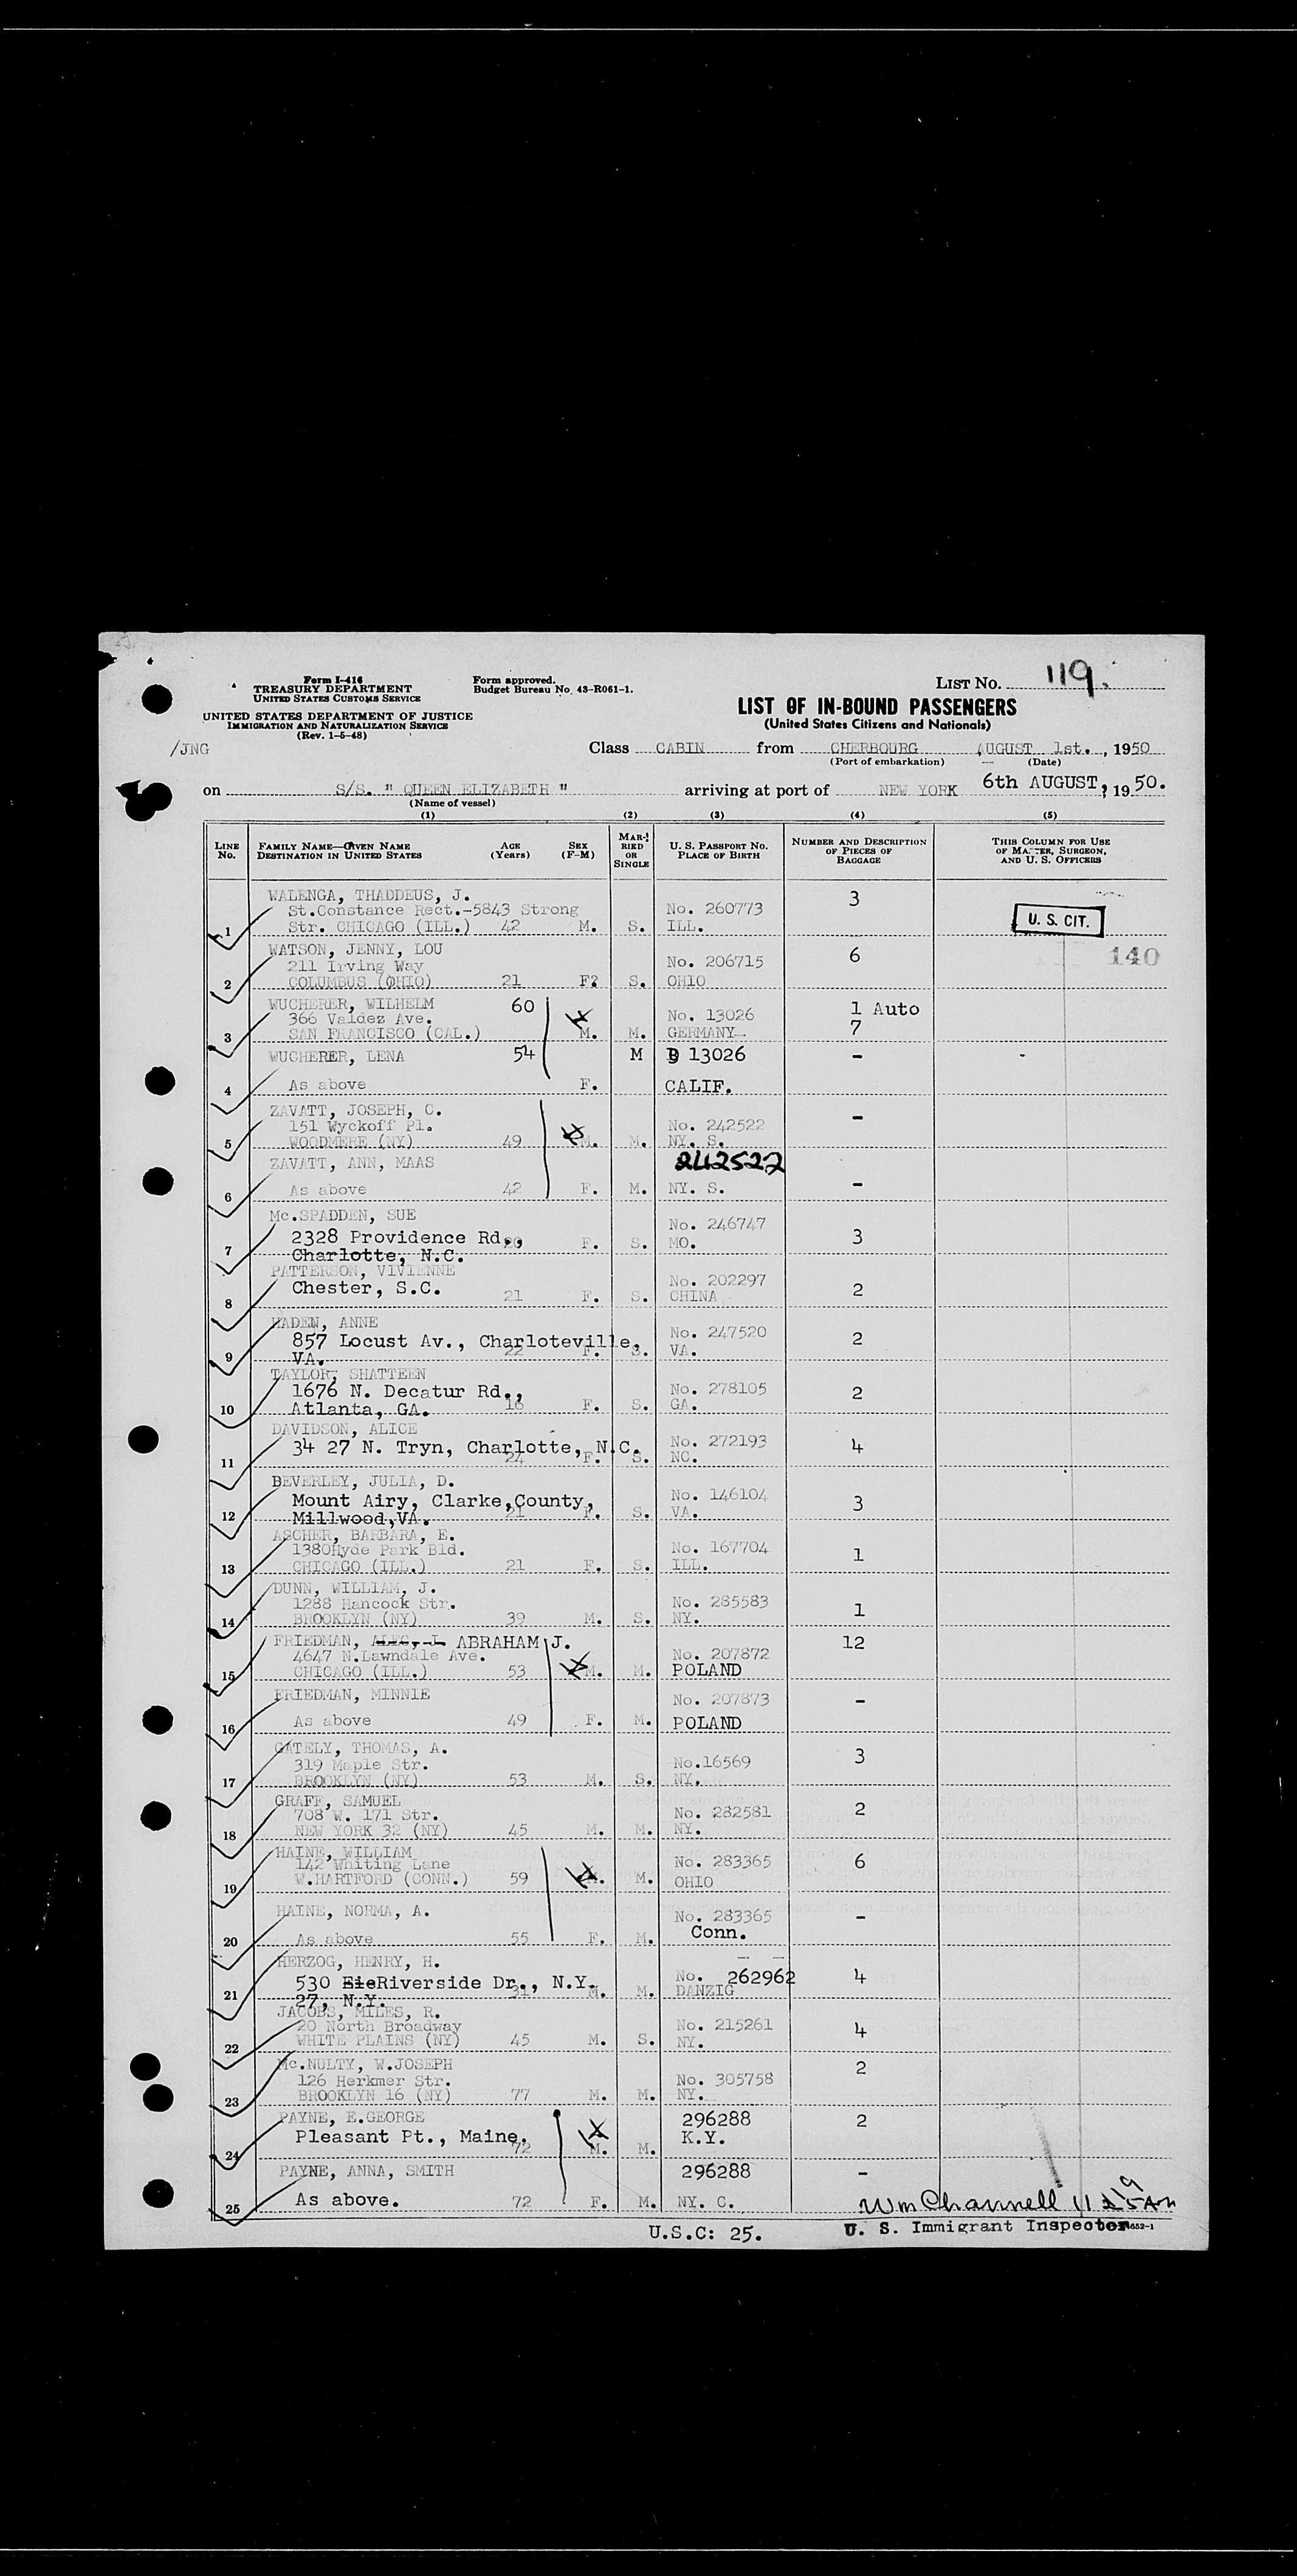 Form I-416
TREASURY DEPARTMENT
UNITED STATES CUSTOMS SERVICE
UNITED STATES DEPARTMENT OF JUSTICE
IMMIGRATION AND NATURALIZATION SERVICE
(Rev. 1-5-48)
Form approved.
Budget Bureau No. 43-R061-1.
LIST NO. 119.
LIST OF IN-BOUND PASSENGERS
(United States Citizens and Nationals)
/JNG
Class CABIN from CHERBOURG AUGUST 1st. , 1950
(Port of embarkation) (Date)
on S/S. " QUEEN ELIZABETH " arriving at port of NEW YORK 6th AUGUST, 1950.
(Name of vessel)
(1) (2) (3) (4) (5)
LINE No. FAMILY NAME—GIVEN NAME DESTINATION IN UNITED STATES AGE (Years) SEX (F-M) MARRIED OR SINGLE U. S. PASSPORT NO. PLACE OF BIRTH NUMBER AND DESCRIPTION OF PIECES OF BAGGAGE THIS COLUMN FOR USE OF MASTER, SURGEON, AND U. S. OFFICERS
WALENGA, THADDEUS, J. 3
St.Constance Rect.-5843 Strong No. 260773
1 Str. CHICAGO (ILL.) 42 M. S. ILL. U. S. CIT.
WATSON, JENNY, LOU 6 140
211 Irving Way No. 206715
2 COLUMBUS (OHIO) 21 F? S. OHIO
WUCHERER, WILHELM 60 1 Auto
366 Valdez Ave. No. 13026 7
3 SAN FRANCISCO (CAL.) M. M. GERMANY
WUCHERER, LENA 54 M 13026 -
4 As above F. CALIF.
ZAVATT, JOSEPH, C. -
151 Wyckoff Pl. No. 242522
5 WOODMERE (NY) 49 M. M. NY. S.
ZAVATT, ANN, MAAS 242522
6 As above 42 F. M. NY. S. -
Mc.SPADDEN, SUE No. 246747
7 2328 Providence Rd., F. S. MO. 3
Charlotte, N.C.
PATTERSON, VIVIENNE No. 202297
8 Chester, S.C. 21 F. S. CHINA 2
HADEN, ANNE No. 247520
857 Locust Av., Charloteville, 2
9 VA. 22 F. S. VA.
TAYLOR, SHATTEEN No. 278105
1676 N. Decatur Rd., 2
10 Atlanta, GA. 16 F. S. GA.
DAVIDSON, ALICE No. 272193
34 27 N. Tryn, Charlotte, N.C. 4
11 24 F. S. NC.
BEVERLEY, JULIA, D. No. 146104
Mount Airy, Clarke,County, 3
12 Millwood,VA. 21 F. S. VA.
ASCHER, BARBARA, E. No. 167704
1380Hyde Park Bld. 1
13 CHICAGO (ILL.) 21 F. S. ILL.
DUNN, WILLIAM, J.
1288 Hancock Str. No. 285583
14 BROOKLYN (NY) 39 M. S. NY. 1
FRIEDMAN, ABRAHAM J. 12
4647 N.Lawndale Ave. No. 207872
15 CHICAGO (ILL.) 53 M. M. POLAND
FRIEDMAN, MINNIE No. 207873 -
16 As above 49 F. M. POLAND
GATELY, THOMAS, A. 3
319 Maple Str. No.16569
17 BROOKLYN (NY) 53 M. S. NY.
GRAFF, SAMUEL 2
708 W. 171 Str. No. 282581
18 NEW YORK 32 (NY) 45 M. M. NY.
HAINE, WILLIAM
142 Whiting Lane No. 283365 6
19 W.HARTFORD (CONN.) 59 M. M. OHIO
HAINE, NORMA, A. No. 283365 -
Conn.
20 As above 55 F. M.
HERZOG, HENRY, H.
530 Riverside Dr., N.Y. No. 262962 4
21 27, N.Y. 31 M. M. DANZIG
JACOBS, MILES, R.
20 North Broadway No. 215261 4
22 WHITE PLAINS (NY) 45 M. S. NY.
Mc.NULTY, W.JOSEPH 2
126 Herkmer Str. No. 305758
23 BROOKLYN 16 (NY) 77 M. M. NY.
PAYNE, E.GEORGE 296288 2
Pleasant Pt., Maine. K.Y.
24 72 M. M.
PAYNE, ANNA, SMITH 296288 -
25 As above. 72 F. M. NY. C.
Wm Channell
U.S.C: 25. U. S. Immigrant Inspector